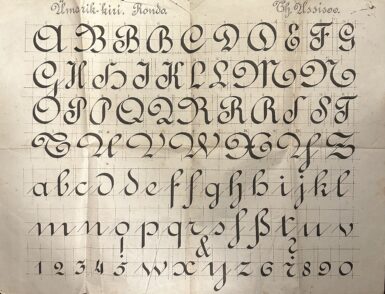 Ümarik-kiri. Ronda. Th. Ussisoo.
A B B B C D D E F G
G H H I K L L M N
O P P Q R R R S S T
T U V W X Y Z
a b c d d e f f g h h i j k l
m n o p q r s ſ ß t u v
! & ?
1 2 3 4 5 w x y z 6 7 8 9 0